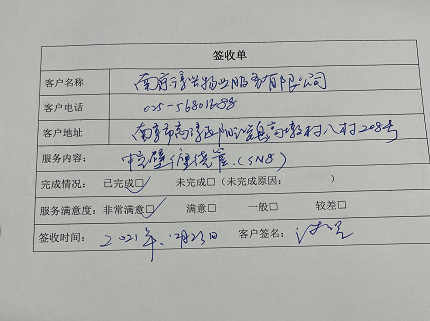 签收单
客户名称 南京淳兴物业服务有限公司
客户电话 025-56801688
客户地址 南京市高淳区阳江镇 村八村208号
服务内容: (SN8)
完成情况: 已完成☑ 未完成□(未完成原因: )
服务满意度: 非常满意☑ 满意□ 一般□ 较差□
签收时间: 2021年.12月23日 客户签名: